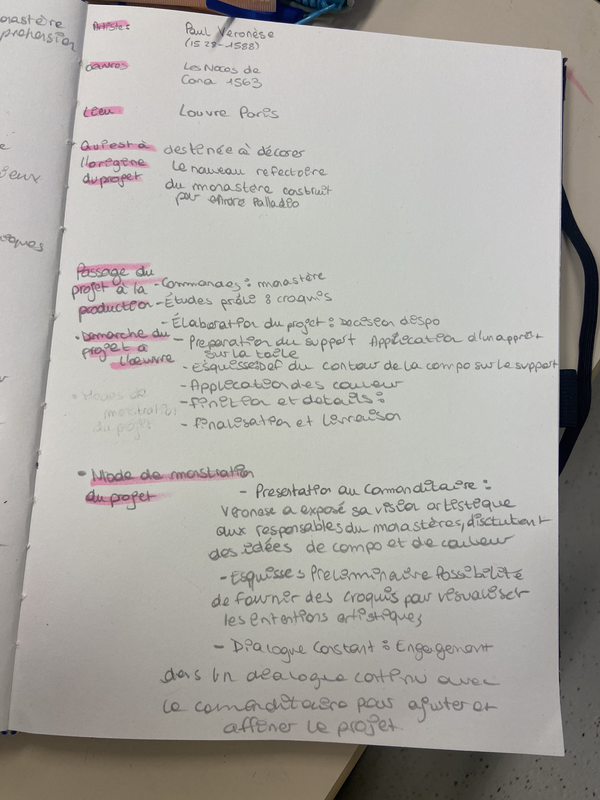 onastère
prehension
ieux
iques
Artiste:
Paul Veronèse
(1528-1588)
œuvres
Les Noces de
Cana 1563
Lieu
Louvre Paris
Qui est à
destinée à décorer
l'origine
le nouveau refectoire
du projet
du monastère construit
par Andre Palladio
Passage du
projet à la
- Commandes : monastère
production
- Études préle & croquis
- Élaboration du projet : Decision dispo
• Demarche du
projet à
l'oeuvre
- Preparation du support Application d'un apprêt
sur la toile
- Esquisse def du contour de la compo sur le support
- Application des couleur
- finition et details :
- finalisation et livraison
• Modes de
monstration
du projet
• Mode de monstration
du projet
- Presentation au Commanditaire :
Veronese a exposé sa vision artistique
aux responsables du monastères, disctutant
des idées de compo et de couleur
- Esquisses Preliminaire Possibilité
de fournir des croquis pour visualiser
les intentions artistiques,
- Dialogue Constant : Engergement
dans un dialogue continu avec
le commanditaire pour ajuster et
affiner le projet.